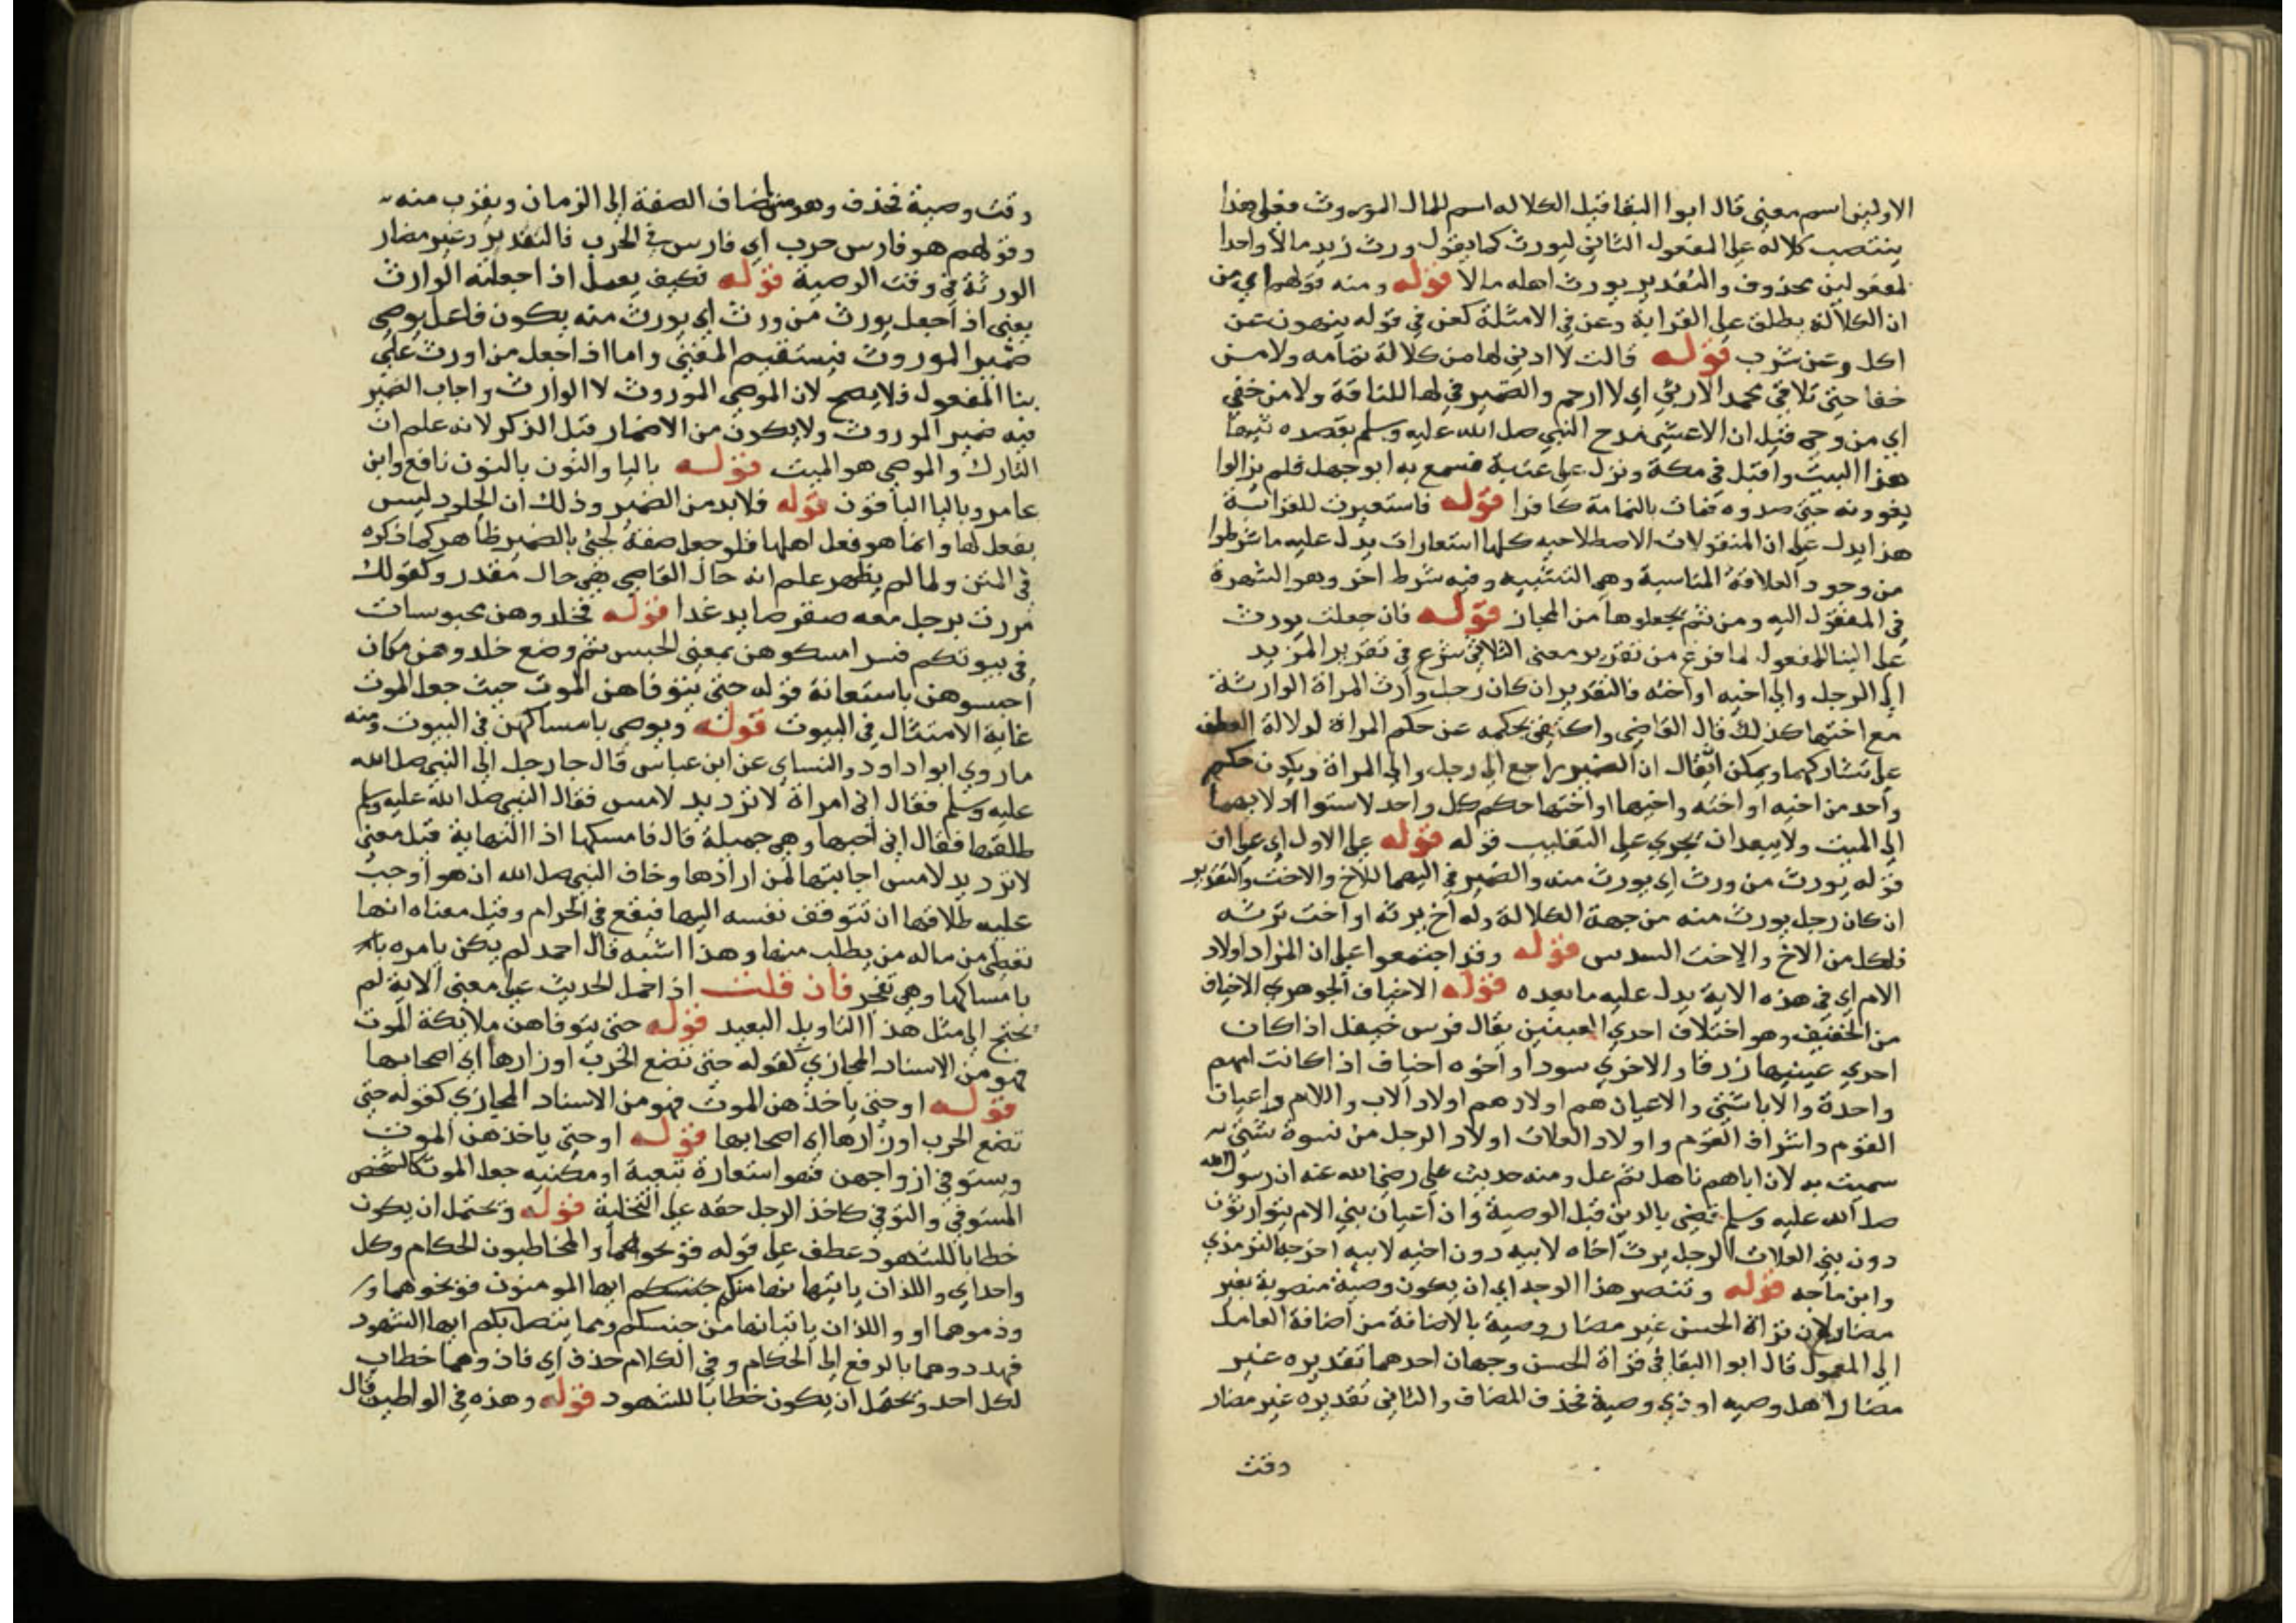 الاولين اسم معنى قال ابوا البقا قيل الكلاله اسم للمال الموروث فعلى هذا
ينتصب كلاله على المفعول الثاني ليورث كما يقول ورث زيد مالا واحدا
لمفعولين محذوف والتقدير يورث اهله مالا قوله ومنه قولهم اي من
ان الكلالة يطلق على القرابة وعن في الامثلة كعن في قوله ينهون عن
اكل وعن شرب قوله قالت لا ادثي لها من كلالة تمامه ولا من
خفا حتى تلاقي محمد الارثي اي لا ارحم والضمير في لها للناقة ولا من خفي
اي من وجي قيل ان الاعشى مدح النبي صلى الله عليه وسلم بقصده
هذا البيت واقبل في مكة ونزل على عتبة فسمع به ابو جهل فلم يزالوا
يغوونه حتى صدوه فمات باليمامة كافرا قوله فاستعيرت للقرابة
هذا يدل على ان المنقولات الاصطلاحيه كلها استعارات يدل عليه ما شرطوا
من وجود العلاقة المناسبة وهي التشبيه وفيه شرط اخر وهو الشهرة
في المنقول اليه ومن ثم يجعلوها من المجاز قوله فان جعلت يورث
على البنا للمفعول لما فرغ من تقرير معنى الثلاثي شرع في تقرير المزيد
الى الرجل والى اخيه او اخته فالتقدير ان كان رجل وارث المراة الوارثة
مع اختها كذلك قال القاضي واكتفى بحكمه عن حكم المراة لدلالة العطف
على تشاركهما ويمكن ان يقال ان الضمير راجع الى رجل والى المراة ويكون حكم
واحد من اخيه او اخته واخيها او اختها حكم كل واحد لاستوا ادلابهما
الى الميت ولا يبعد ان يجري على التغليب قوله قوله على الاول اي على ان
قوله يورث من ورث اي يورث منه والضمير في اليهما للاخ والاخت والتقدير
ان كان رجل يورث منه من جهة الكلالة وله اخ يرثه او اخت ترثه
فلكل من الاخ والاخت السدس قوله وقد اجتمعوا على ان المراد اولاد
الام اي في هذه الاية يدل عليه ما بعده قوله الاخياف الجوهري الاخياف
من الخفيف وهو اختلاف احدي العينين يقال فرس خيفل اذا كان
احدي عينيها زرقا والاخري سودا واخوه اخياف اذا كانت امهم
واحدة والابا شتى والاعيان هم اولادهم اولاد الاب واللام واعيان
القوم واشراف القوم واولاد العلات اولاد الرجل من نسوة شتى
سميت به لان اباهم ناهل ثم عل ومنه حديث علي رضي الله عنه ان رسول الله
صلى الله عليه وسلم قضى بالدين قبل الوصية وان اعيان بني الام يتوارثون
دون بني العلات الرجل يرث اخاه لابيه دون اخيه لابيه اخرجه الترمذي
وابن ماجه قوله وتنصر هذا الوجه اي ان يكون وصية منصوبة بغير
مضار لان قراة الحسن غير مضار وصية بالاضافة من اضافة العامل
الى المعمول قال ابوا البقا في قراة الحسن وجهان احدهما تقديره غير
مضار اهل وصيه او ذي وصية فحذف المضاف والثاني تقديره غير مضار
وقت
وقت وصية فحذف وهو من اضاف الصفة الى الزمان ويقرب منه
وقولهم هو فارس حرب اي فارس في الحرب فالتقدير وغير مضار
الورثة في وقت الوصية قوله تكيف يعمل اذا جعلته الوارث
يعني اذا جعل يورث من ورث اي يورث منه يكون فاعل يوصي
ضمير الموروث فيستقيم المعنى واما اذا جعل من اورث على
بنا المفعول فلا يصح لان الموصي الموروث لا الوارث واجاب الضمير
فيه ضمير الموروث ولا يكون من الاضمار قبل الذكر لانه علم ان
التارك والموصي هو الميت قوله باليا والنون بالنون نافع وابن
عامر وباليا الباقون قوله فلابد من الضمير وذلك ان الخلود ليس
بفعل لها وانما هو فعل اهلها فلو جعل صفة لجئ بالضمير ظاهر كما ذكره
في المتن ولما لم يظهر علم انه حال القاضي هي حال مقدر وكقولك
مررت برجل معه صقر صايد غدا قوله فخلدوهن محبوسات
في بيوتكم فسر امسكوهن بمعنى الحبس ثم وضع خلدوهن مكان
احبسوهن باستعانة قوله حتى يتوفاهن الموت حيث جعل الموت
غاية الامتثال في البيوت قوله ويوصي بامساكهن في البيوت ومنه
ما روي ابوا داود والنساي عن ابن عباس قال جا رجل الى النبي صلى الله
عليه وسلم فقال اني امراة لا ترد يد لامس فقال النبي صلى الله عليه وسلم
طلقها فقال اني احبها وهي جميلة قال فامسكها اذا النهاية قيل معنى
لا ترد يد لامس اجابتها لمن ارادها وخاف النبي صلى الله ان هو اوجب
عليه طلاقها ان تتوقف نفسه اليها فيقع في الحرام وقيل معناه انها
تعطي من ماله من يطلب منها وهذا اشبه قال احمد لم يكن يامره
بامساكها وهي تفجر فان قلت اذا حمل الحديث على معنى الاية لم
يحتج الى مثل هذا التاويل البعيد قوله حتى يتوفاهن ملايكة الموت
فهو من الاسناد المجازي كقوله حتى تضع الحرب اوزارها اي اصحابها
قوله او حتى ياخذهن الموت فهو من الاسناد المجازي كقوله حتى
تضع الحرب اوزارها اي اصحابها قوله او حتى ياخذهن الموت
ويستوفي ازواجهن فهو استعارة تبعية او مكنيه جعل الموت كالشخص
المستوفي والتوفي كاخذ الرجل حقه على التخلية قوله ويحتمل ان يكون
خطابا للشهود عطف على قوله فوبخوهما والمخاطبون الحكام وكل
واحد اي واللذان ياتيانها منكم جنسكم ايها المومنون فوبخوهما و
وذموهما او واللذان ياتيانها من جنسكم ومما يتصل بكم ايها الشهود
فهددوهما بالرفع الى الحكام وفي الكلام حذف اي فاذوهما خطاب
لكل احد ويحتمل ان يكون خطابا للشهود قوله وهذه في الواطين قال